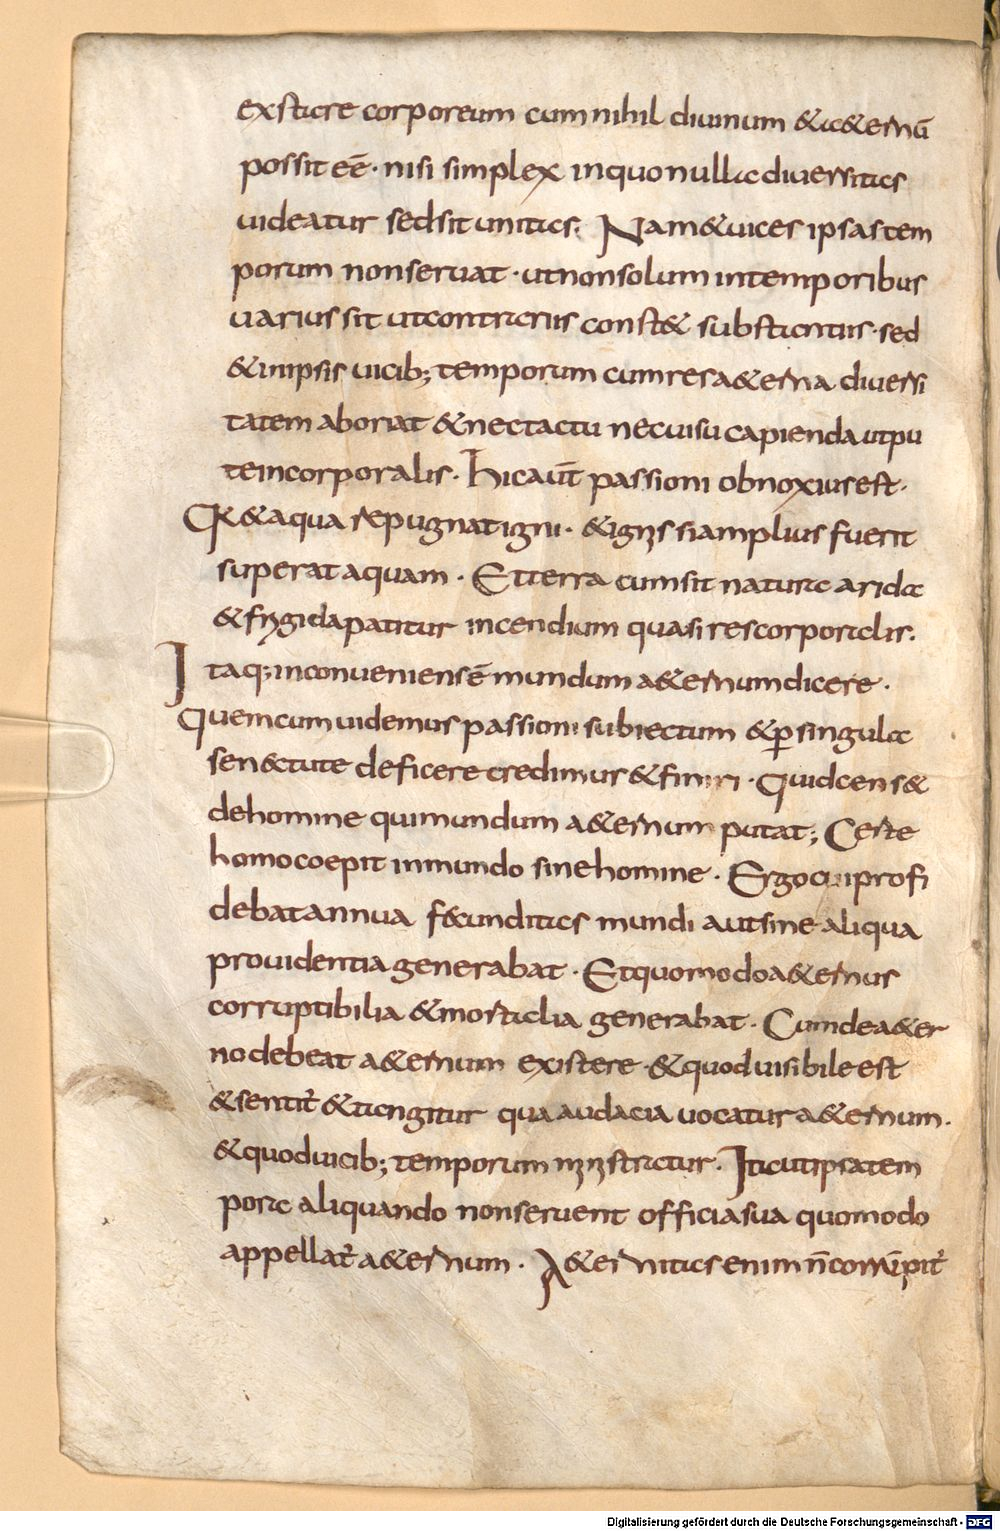 exstare corporeum cum nihil diuinum & a&ernū
possit eē· nisi simplex in quo nulla diuersitas
uideatur sed sit unitas. Nam & uices ipsas tem
porum non seruat· ut non solum in temporibus
uarius sit ut contrariis const& substantiis· sed
& in ipsis uicib; temporum cum res a&erna diuersi
tatem aboriat & nec tactu nec uisu capienda utpu
te incorporalis· hic aūt passioni obnoxius est·
Qm̄ & aqua repugnat igni· & ignis si amplius fuerit
superat aquam· Et terra cum sit natura arida
& frigida patitur incendium quasi res corporalis.
Itaq; inconueniens ē mundum a&ernum dicere·
quem cum uidemus passioni subiectum & p singula
senectute deficere credimus & finiri· Quid cens&
de homine qui mundum a&ernum putat; Certe
homo coepit in mundo sine homine· Ergo cui profi
debat annua fecunditas mundi aut sine aliqua
prouidentia generabat· Et quomodo a&ernus
corruptibilia & mortalia generabat· Cum de a&er
no debeat a&ernum existere· & quod uisibile est
& sentit᷑ & tangitur qua audacia uocatur a&ernum·
& quod uicib; temporum ministratur· Ita ut ipsa tem
pora aliquando non seruent officia sua quomodo
appellat᷑ a&ernum· A&ernitas enim n̄ corrūpit᷑
Digitalisierung gefördert durch die Deutsche Forschungsgemeinschaft - DFG